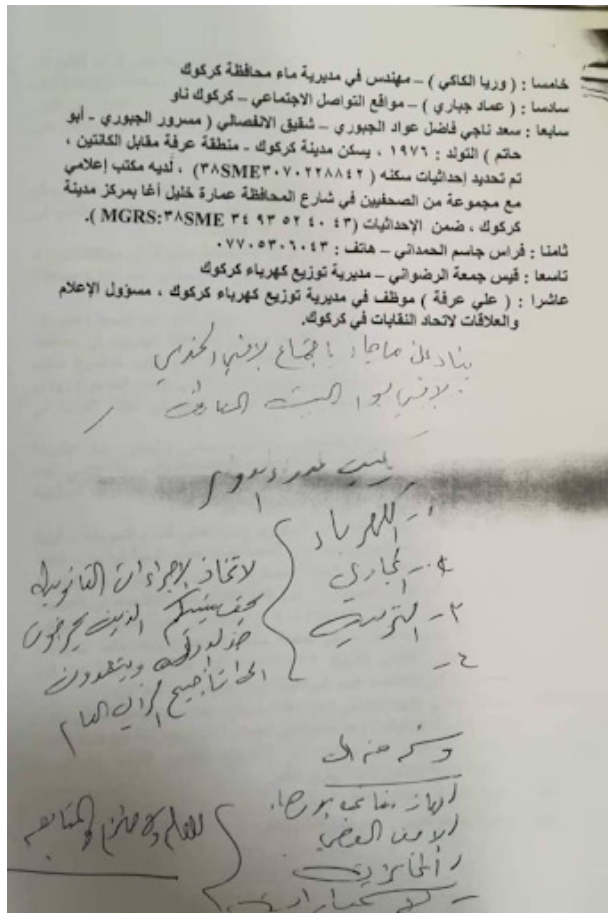 خامسا : ( وريا الكاكي ) – مهندس في مديرية ماء محافظة كركوك
سادسا : ( عماد جباري ) – مواقع التواصل الاجتماعي – كركوك ناو
سابعا : سعد ناجي فاضل عواد الجبوري – شقيق الانفصالي ( مسرور الجبوري - أبو
حاتم ) التولد : ١٩٧٦ ، يسكن مدينة كركوك - منطقة عرفة مقابل الكانتين ،
تم تحديد إحداثيات سكنه ( ٣٨SME٣٠٧٠٢٢٨٨٤٢) ، لديه مكتب إعلامي
مع مجموعة من الصحفيين في شارع المحافظة عمارة خليل أغا بمركز مدينة
كركوك ، ضمن الإحداثيات (MGRS:٣٨SME ٣٤ ٩٣ ٥٢ ٤٠ ٤٣ ).
ثامنا : فراس جاسم الحمداني – هاتف : ٠٧٧٠٥٣٠٦٠٤٣
تاسعا : قيس جمعة الرضواني – مديرية توزيع كهرباء كركوك
عاشرا : ( علي عرفة ) موظف في مديرية توزيع كهرباء كركوك ، مسؤول الإعلام
والعلاقات لاتحاد النقابات في كركوك.
بناء على ما جاء
١- الكهرباء
٢- المجاري
٣- التربية
٤-
لاتخاذ الاجراءات القانونية
بحق منتسبيكم الذين يحرضون
ضد الدولة ويتعمدون
الى تأجيج الرأي العام
ونسخة منه الى
الامن الوطني